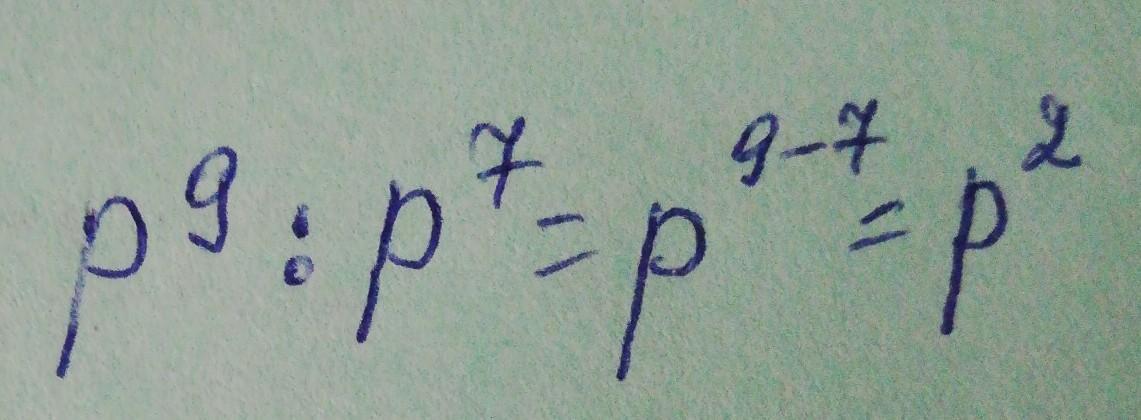 p⁹ : p⁷ = p⁹⁻⁷ = p²